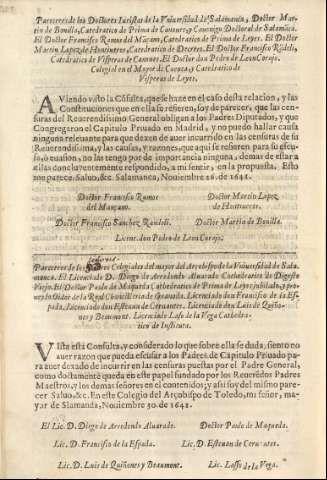 Pareceres de los Doctores Iuristas de la Vniuersidad de Salamanca, Doctor Mar-
tin de Bonilla, Catedratico de Prima de Canones, y Canonigo Doctoral de Salamāca.
El Doctor Francisco Ramos del Mançano, Catedratico de Prima de Leyes. El Doctor
Martin Lopez de Hontiueros, Catedratico de Decreto. El Doctor Francisco
Catedratico de Visperas de Canones. El Doctor don Pedro de Leon Corojo.
Colegial en el Mayor de Cuenca, y Catedratico de
Visperas de Leyes.
AViendo visto la Cōsulta, que se haze en el caso desta relacion, y las
Constituciones que en ella se refieren, soy de parecer, que las cen-
suras del Reuerendissimo General obligan a los Padres Diputados, y que
Congregaron el Capitulo Priuado en Madrid, y no puedo hallar causa
ninguna releuante para que dexen de auer incurrido en las censuras de su
Reuerendissima, y las causas, y razones, que aqui se refieren para su escu-
lo, ò euasion, no las tengo por de importancia ninguna, demas de estar a
ellas concluyentemente respondido, a mi sentir, en la propuesta. Esto
me parece. Saluo, &c. Salamanca, Nouiembre 26. de 1641.
Doctor Francisco Ramos
del Mançano.
Doctor Martin Lopez
de Hontiueros.
Doctor Francisco Sanchez Randoli.
Doctor Martin de Bonilla.
Licenc. don Pedro de Leon Corojo.
señores
Pareceres de los Colegiales del mayor del Arçobispo de la Vniuersidad de Sala-
manca. El Licenciado D. Diego de Arredondo Aluarado Cathedratico de Digesto
Viejo. El Doctor Paulo de Maqueda Cathedratico de Prima de Leyes jubilado, y pro-
ueydo Oidor de la Real Chancilleria de Granada. Licenciado don Francisco de la Es-
pada. Licenciado don Esteuan de Ceruantes. Licenciado don Luis de Quiño-
nes y Beaumont. Licenciado Laso de la Vega Cathedra-
tico de Instituta.
VIsta esta Consulta, y considerado lo que sobre ella se duda, siento no
auer razon que pueda escusar a los Padres de Capitulo Priuado pa-
ra auer dexado de incurrir en las censuras puestas por el Padre General,
como doctamente queda en este papel fundado por los Reuerēdos Padres
Maestros, y los demas señores en el contenidos; y assi soy del mismo pare-
cer Saluo, &c. En este Colegio del Arçobispo de Toledo, mi señor, ma-
yor de Slamanda, Nouiembre 30. de 1641.
El Lic. D. Diego de Arredondo Aluarado.
Doctor Paulo de Maqueda.
Lic. D. Francisco de la Espada.
Lic. D. Esteuan de Ceruantes.
Lic. D. Luis de Quiñones y Beaumont.
Lic. Lasso de la Vega.